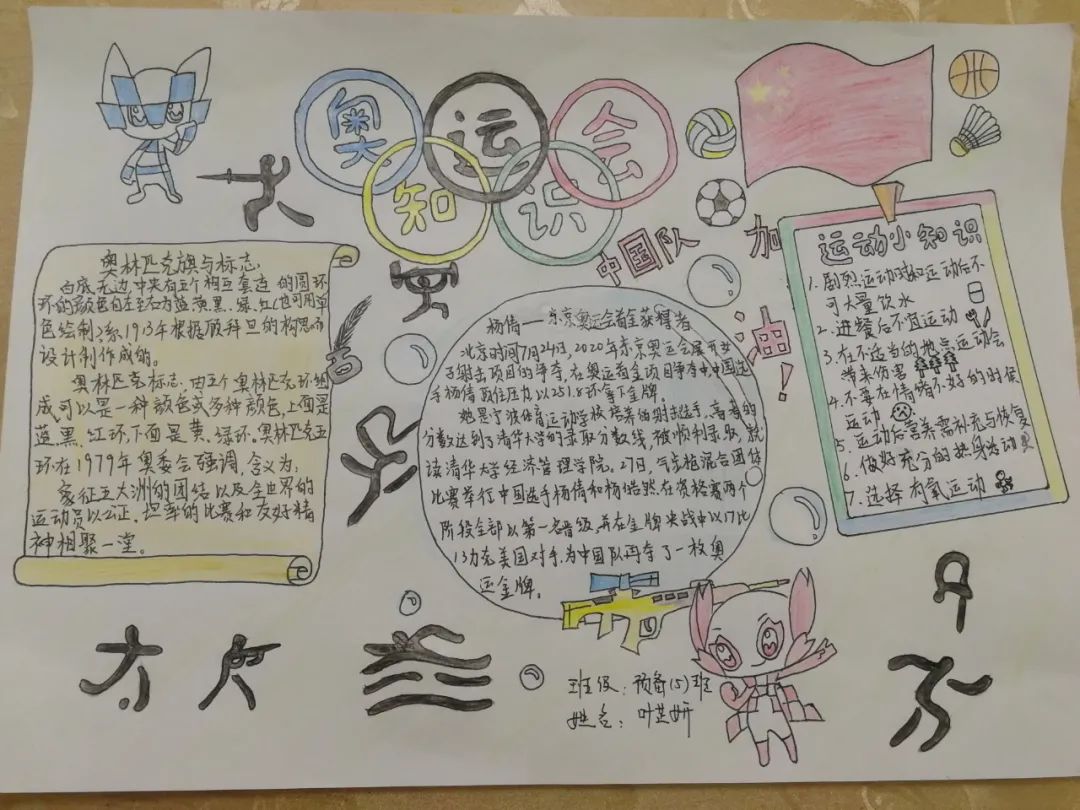 奥运会
知识
中国队 加油!
奥林匹克旗与标志
白底无边中央有五个相互套连的圆环
环的颜色自左至右为蓝、黄、黑、绿、红(也可用单
色绘制)系1913年根据顾拜旦的构思而
设计制作成的。
奥林匹克标志,由五个奥林匹克环组
成可以是一种颜色或多种颜色,上面是
蓝、黑、红环,下面是黄、绿环.奥林匹克五
环在1979年奥委会强调,含义为:
象征五大洲的团结以及全世界的
运动员以公正、坦率的比赛和友好精
神相聚一堂。
杨倩——东京奥运会首金获得者
北京时间7月24日,2020年东京奥运会展开女
子射击项目的争夺,在奥运首金项目争夺中中国选
手杨倩顶住压力以251.8环拿下金牌。
她是宁波体育运动学校培养的射击选手,高考的
分数达到了清华大学的录取分数线,被顺利录取,就
读清华大学经济管理学院。27日,气步枪混合团体
比赛举行中国选手杨倩和杨皓然在资格赛两个
阶段全部以第一名晋级,并在金牌决战中以17比
13力克美国对手,为中国队再夺了一枚奥
运金牌。
运动小知识
1.剧烈运动时和运动后不
可大量饮水
2.进餐后不宜运动
3.在不适当的地点运动会
带来伤害
4.不要在情绪不好的时候
运动
5.运动后营养需补充与恢复
6.做好充分的热身运动
7.选择有氧运动
班级:预备(5)班
姓名:叶芷妍